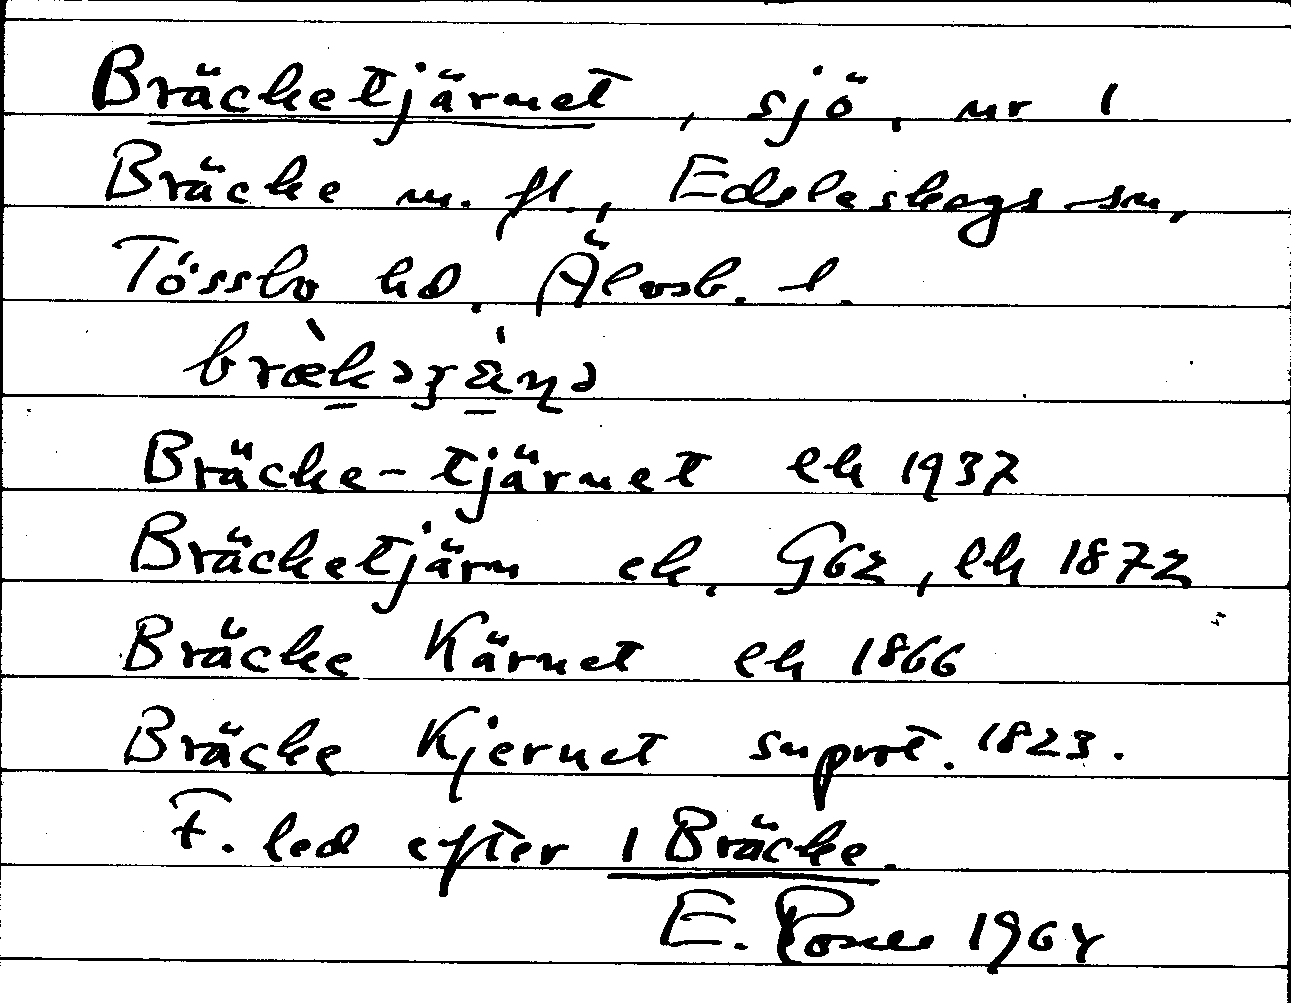 Bräcketjärnet, sjö, nr 1
Bräcke m. fl., Edsleskogs sn,
Tössbo hd. Älvsb. l.
Bräcke-tjärnet ek 1937
Bräcketjärn ek. G62, ek 1872
Bräcke Kärnet ek 1866
Bräcke Kjernet snprot. 1823.
F. led efter 1 Bräcke.
E. 1964